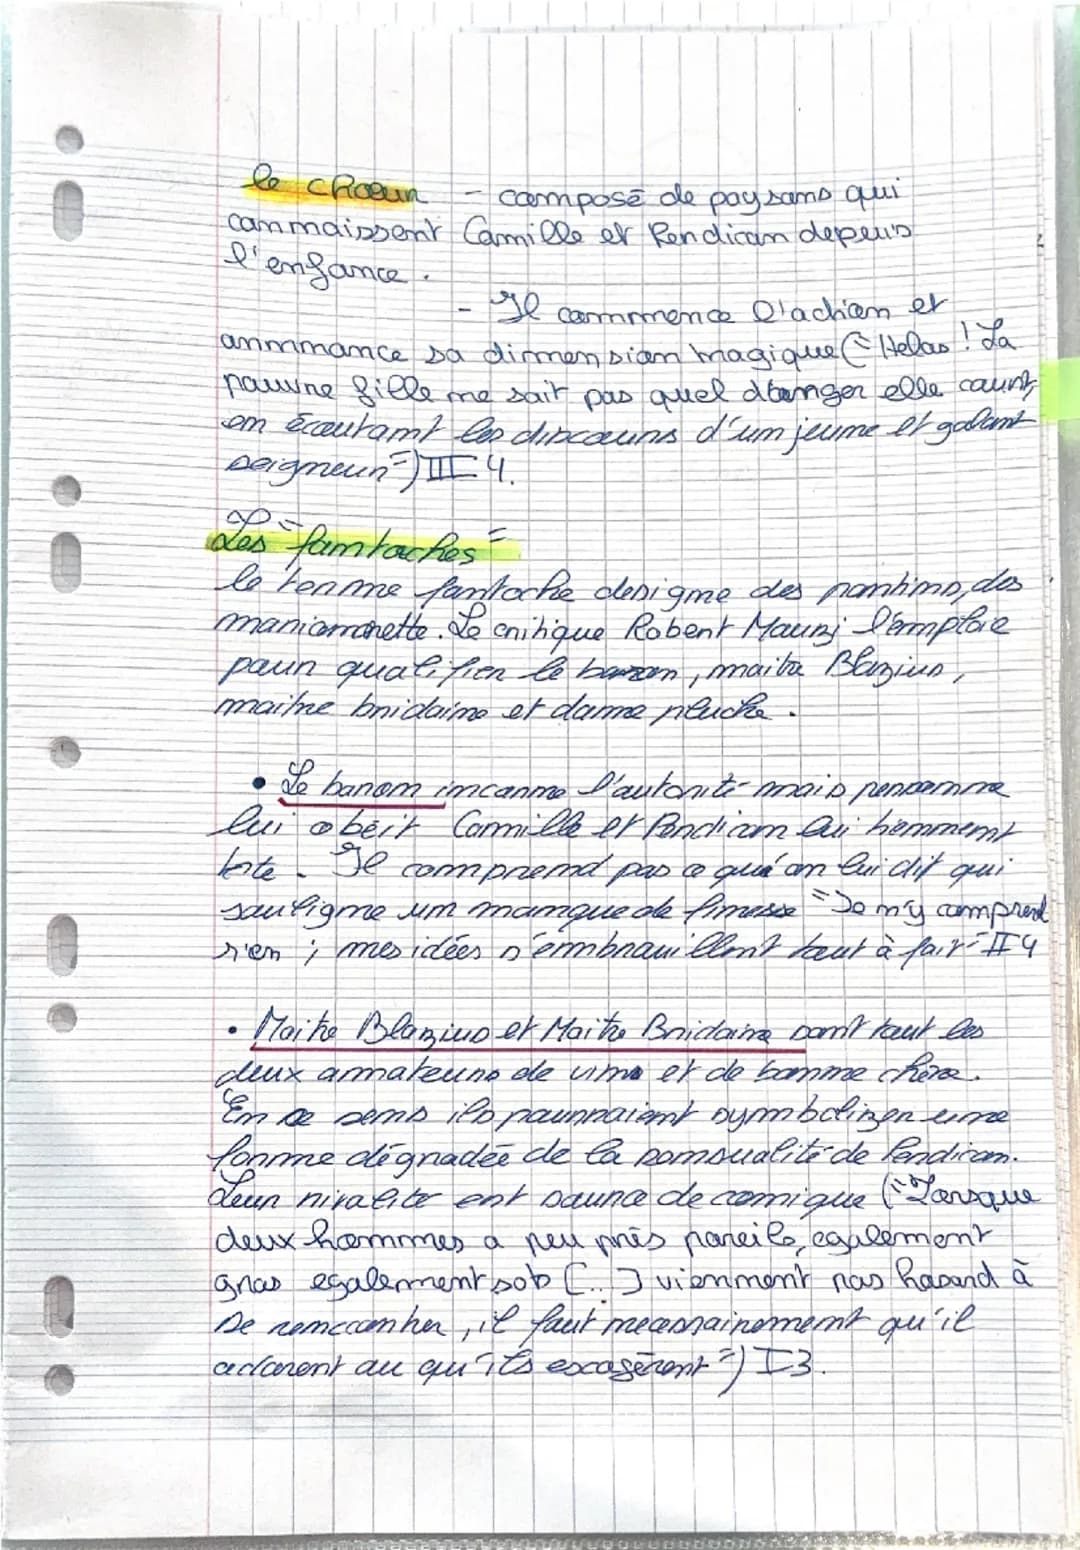 le choeur - composé de paysans qui
connaissent Camille et Perdican depuis
l'enfance.
- Il commence l'action et
annonce sa dimension tragique ("Helas ! La
pauvre fille ne sait pas quel danger elle court,
en écoutant les discours d'un jeune et galant
seigneur") III 4.
Les "fantoches"
le terme fantoche designe des pantins, des
marionnette. Le critique Robert Mauzi l'emploie
pour qualifier le baron, maitre Blazius,
maitre bridaine et dame pluche.
• Le baron incarne l'autorité mais personne
lui obéit Camille et Perdican lui tiennent
tête. Il comprend pas ce qu'on lui dit qui
souligne un manque de finesse "Je n'y comprend
rien ; mes idées s'embrouillent tout à fait" II 4
• Maitre Blazius et Maitre Bridaine sont tout les
deux amateurs de vins et de bonne chère.
En ce sens ils pourraient symboliser une
forme dégradée de la sensualité de Perdican.
Leur rivalité est source de comique ("Lorsque
deux hommes a peu près pareils, egalement
gros egalement sots [...] viennent pas hasard à
se rencontrer, il faut necessairement qu'il
adorent ou qu'ils exagèrent") I 3.